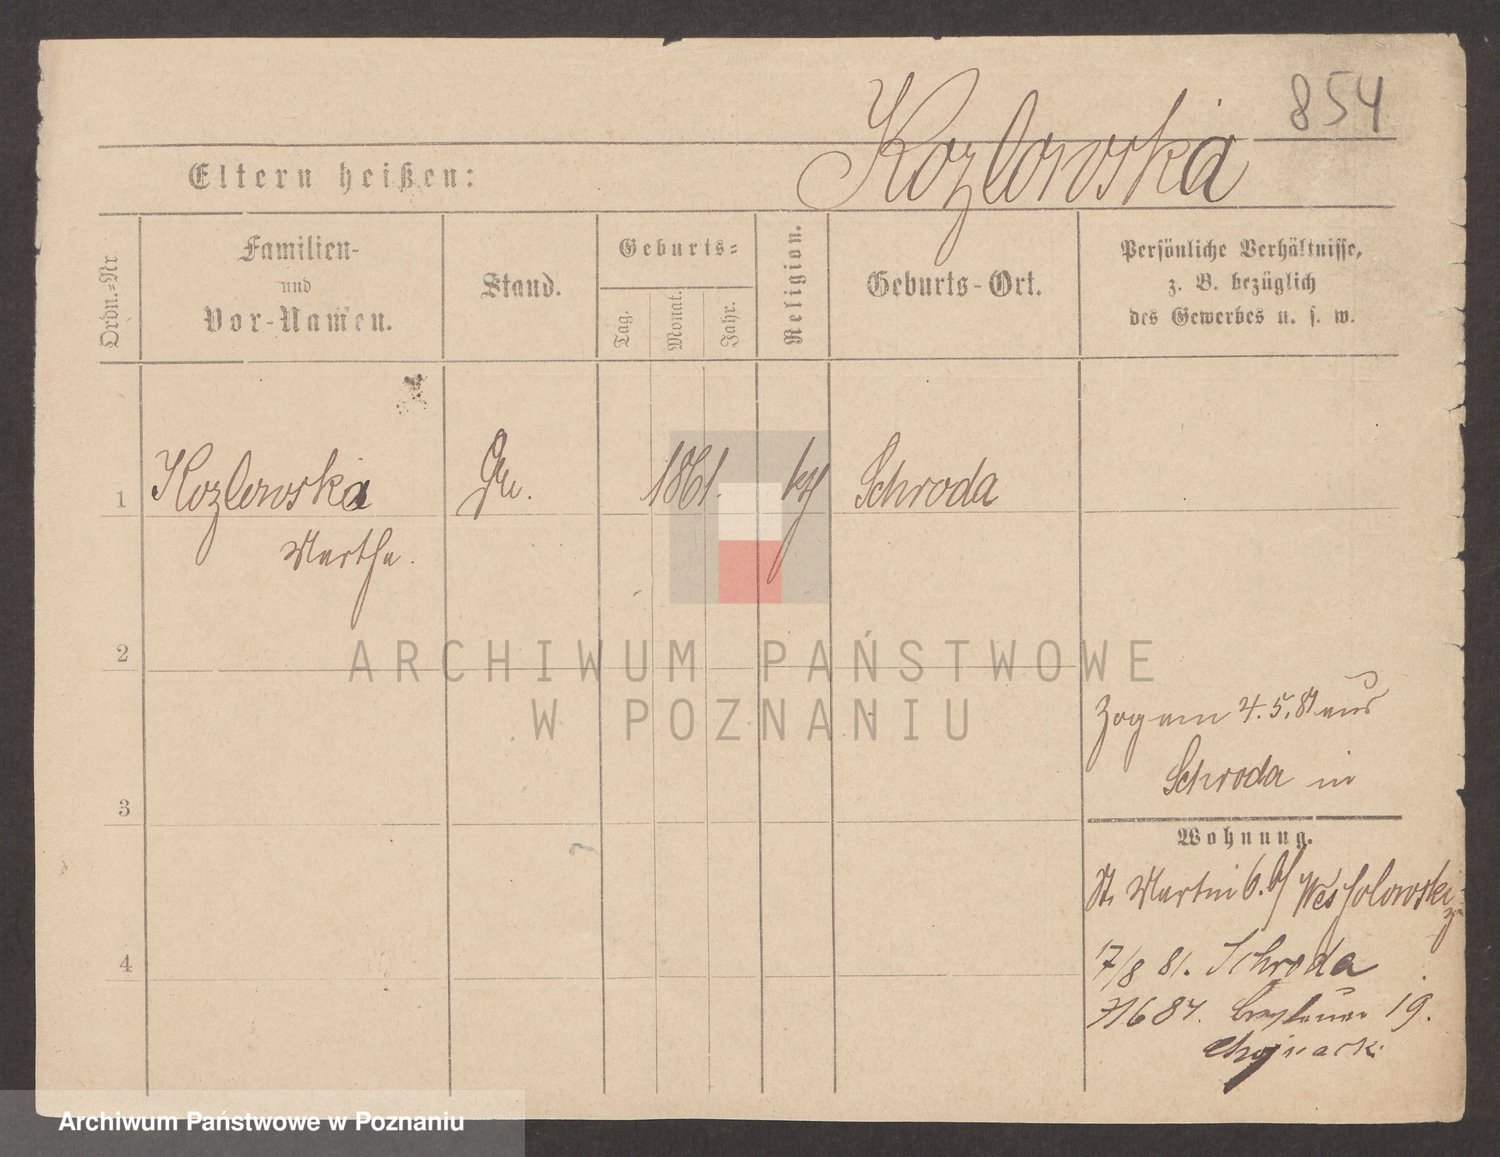 854
Kozlowska
Eltern heißen:
Ordn.=Nr
Familien-
und
Vor-Namen.
Stand.
Geburts=
Tag.
Monat.
Jahr.
Religion.
Geburts-Ort.
Persönliche Verhältnisse,
z. B. bezüglich
des Gewerbes u. s. w.
1 Kozlowska 1861. Schroda
Martha.
2
ARCHIWUM PAŃSTWOWE
W POZNANIU
Zog am 4.5.81 aus
Schroda in
3
Wohnung.
St. Martin 6. b/ Wessolowski
17/8 81. Schroda
4
Breslauer 19.
Chojnacki
Archiwum Państwowe w Poznaniu